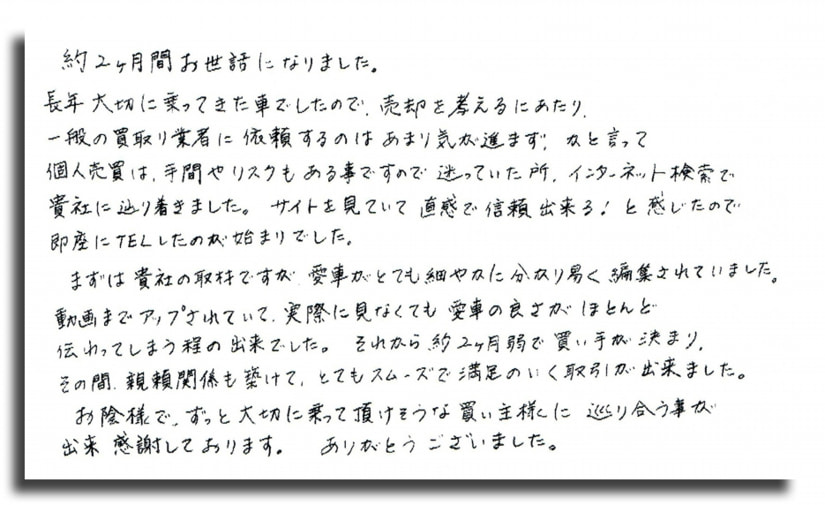 約2ヶ月間お世話になりました。
長年大切に乗ってきた車でしたので、売却を考えるにあたり、
一般の買取り業者に依頼するのはあまり気が進まず、かと言って
個人売買は、手間やリスクもある事ですので迷っていた所、インターネット検索で
貴社に辿り着きました。 サイトを見ていて直感で信頼出来る!と感じたので
即座にTELしたのが始まりでした。
まずは貴社の取材ですが、愛車がとても細やかに分かり易く編集されていました。
動画までアップされていて、実際に見なくても愛車の良さがほとんど
伝わってしまう程の出来でした。 それから約2ヶ月弱で買い手が決まり、
その間、親頼関係も築けて、とてもスムーズで満足のいく取引が出来ました。
お陰様で、ずっと大切に乗って頂けそうな買い主様に巡り合う事が
出来感謝しております。 ありがとうございました。